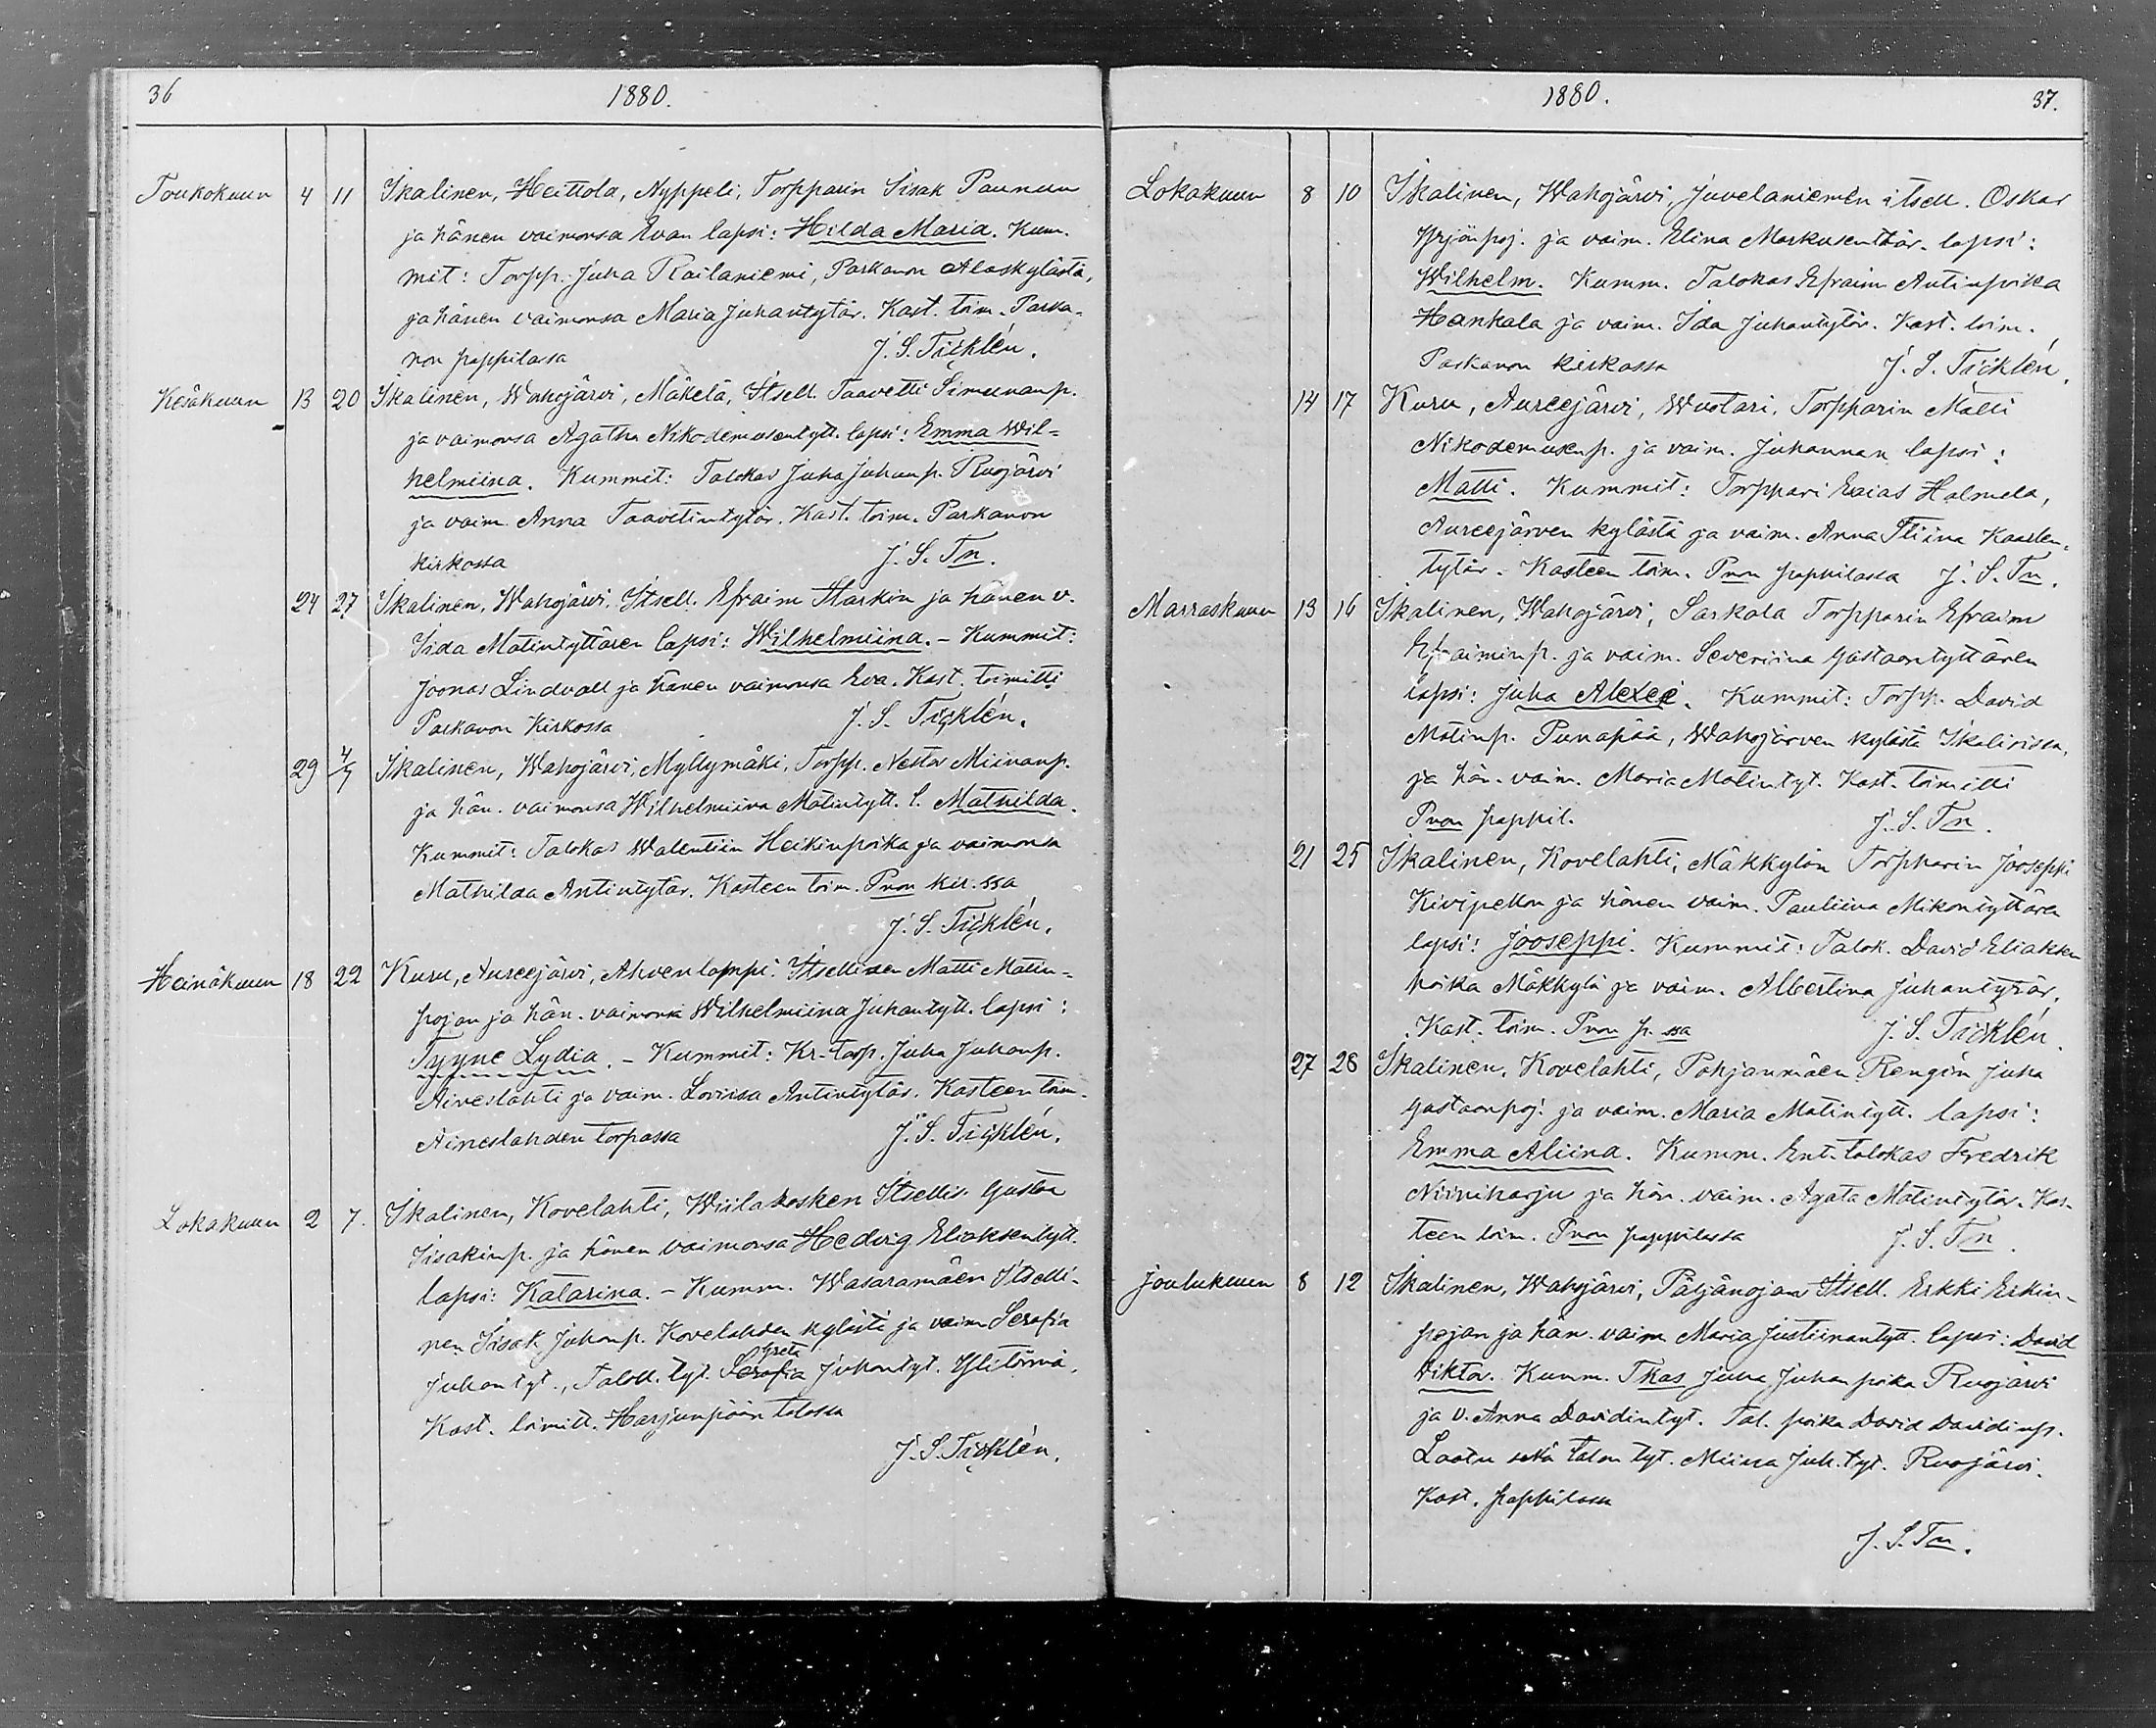 36
1880.
Toukokuun 4 11 Ikalinen, Heittola, Nyppeli, Torpparin Iisak Paunun
ja hänen vaimonsa Evan lapsi: Hilda Maria. Kum.
mit: Torpp. Juha Railaniemi, Parkanon Alaskylästä,
ja hänen vaimonsa Maria Juhantytär. Kast. toim. Parka-
non pappilassa J. S. Ticklén.
Kesäkuun 13 20 Ikalinen, Wahojärvi, Mäkelä, Itsell. Taavetti Simunanp.
ja vaimonsa Agatha Nikodemusentytt. lapsi: Emma Wil-
helmiina. Kummit: Talokas Juha Juhanp. Ruojärvi
ja vaim. Anna Taavetintytär. Kast. toim. Parkanon
kirkossa J. S. Tn.
24 27 Ikalinen, Wahojärvi, Itsell. Efraim Starkin ja hänen v.
Iida Matintyttären lapsi: Wilhelmiina. - Kummit:
Joonas Lindvall ja hänen vaimonsa Eva. Kast. toimitti
Parkanon Kirkossa J. S. Ticklén.
29 4/7 Ikalinen, Wahojärvi, Myllymäki, Torpp. Nestor Miinanp.
ja hän. vaimonsa Wilhelmiina Matintytt. l. Mathilda.
Kummit: Talokas Walentiin Heikinpoika ja vaimonsa
Mathilda Antintytär. Kasteen toim. Pnon kir.ssa
J. S. Ticklén.
Heinäkuun 18 22 Kuru, Aureejärvi, Ahvenlampi. Itsellisen Matti Matin-
pojan ja hän. vaimonsa Wilhelmiina Juhantytt. lapsi:
Tyyne Lydia. - Kummit: Kr-torp. Juha Juhanp.
Aineslahti ja vaim. Loviisa Antintytär. Kasteen toim.
Aineslahden torpassa J. S. Ticklén.
Lokakuun 2 7. Ikalinen, Kovelahti, Wiilakosken Itsellis. Gustaa
Iisakinp. ja hänen vaimonsa Hedvig Eliaksentytt.
lapsi: Katarina. - Kumm. Wasaramäen Itselli-
nen Iisak Juhanp. Kovelahden kylästä ja vaim Serafia
Juhantyt., Taloll. tyt. Serafia Greta Juhantyt. Ylitörmä.
Kast. toimitt. Harjunpään talossa
J. S. Ticklén.
1880.
37.
Lokakuun 8 10 Ikalinen, Wahojärvi, Juvelaniemen itsell. Oskar
Yrjönpoj. ja vaim. Elina Markusentär. lapsi:
Wilhelm. Kumm. Talokas Efraim Antinpoika
Hankala ja vaim. Ida Juhantytär. Kast. toim.
Parkanon kirkossa J. S. Ticklén.
14 17 Kuru, Aureejärvi, Wuotari, Torpparin Matti
Nikodemusenp. ja vaim. Juhannan lapsi:
Matti. Kummit: Torppari Esaias Halmela,
Aureejärven kylästä ja vaim. Anna Stiina Kaarlen-
tytär. Kasteen toim. Pnon pappilassa J. S. Tn.
Marraskuun 13 16 Ikalinen, Wahojärvi, Sarkala Torpparin Efraim
Efraiminp. ja vaim. Severiina Gustaantyttären
lapsi: Juha Alexei. Kummit: Torpp. David
Matinp. Punapää, Wahojärven kylästä Ikalisissa,
ja hän. vaim. Maria Matintyt. Kast. toimitti
Pnon pappil. J. S. Tn.
21 25 Ikalinen, Kovelahti, Mäkkylän Torpparin Jooseppi
Kivipellon ja hänen vaim. Pauliina Mikontyttären
lapsi: Jooseppi. Kummit: Talok. David Eliaksen
poika Mäkkylä ja vaim. Albertina Juhantytär.
Kast. toim. Pnon p. ssa J. S. Ticklén.
27 28 Ikalinen, Kovelahti, Pohjanmäen Rengin Juha
Gustaanpoj. ja vaim. Maria Matintytt. lapsi:
Emma Aliina. Kumm. Ent. talokas Fredrik
Niiniharju ja hän. vaim. Agata Matintytär. Kas-
teen toim. Pnon pappilassa J. S. Tn.
Joulukuun 8 12 Ikalinen, Wahojärvi, Päljänojan Itsell. Erkki Erkin-
pojan ja hän. vaim. Maria Justiinantytt. lapsi: David
Viktor. Kumm. Tkas Juha Juhanpoika Ruojärvi
ja v. Anna Davidintyt. Tal. poika David Davidinp.
Laatu sekä talon tyt. Miina Juh.tyt. Ruojärvi.
Kast. pappilassa
J. S. Tn.